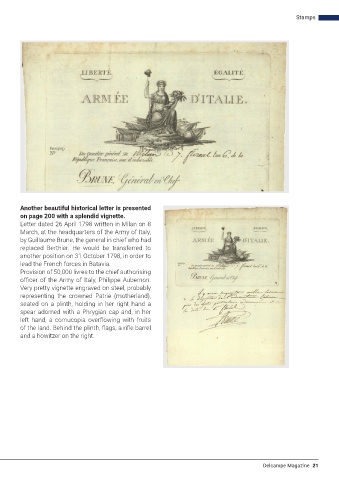 Stamps
LIBERTÉ.
ÉGALITÉ.
ARMÉE
D'ITALIE.
Au quartier-général de Milan le 7. floreal l'an 6.e de la
République Française, une et indivisible.
BRUNE, Général en Chef
Another beautiful historical letter is presented
on page 200 with a splendid vignette.
Letter dated 26 April 1798 written in Milan on 8
March, at the headquarters of the Army of Italy,
by Guillaume Brune, the general in chief who had
replaced Berthier. He would be transferred to
another position on 31 October 1798, in order to
lead the French forces in Batavia.
Provision of 50,000 livres to the chief authorising
officer of the Army of Italy, Philippe Aubernon.
Very pretty vignette engraved on steel, probably
representing the crowned Patrie (motherland),
seated on a plinth, holding in her right hand a
spear adorned with a Phrygian cap and, in her
left hand, a cornucopia overflowing with fruits
of the land. Behind the plinth, flags, a rifle barrel
and a howitzer on the right.
ARMÉE
D'ITALIE.
BRUNE, Général en Chef
Delcampe Magazine 21